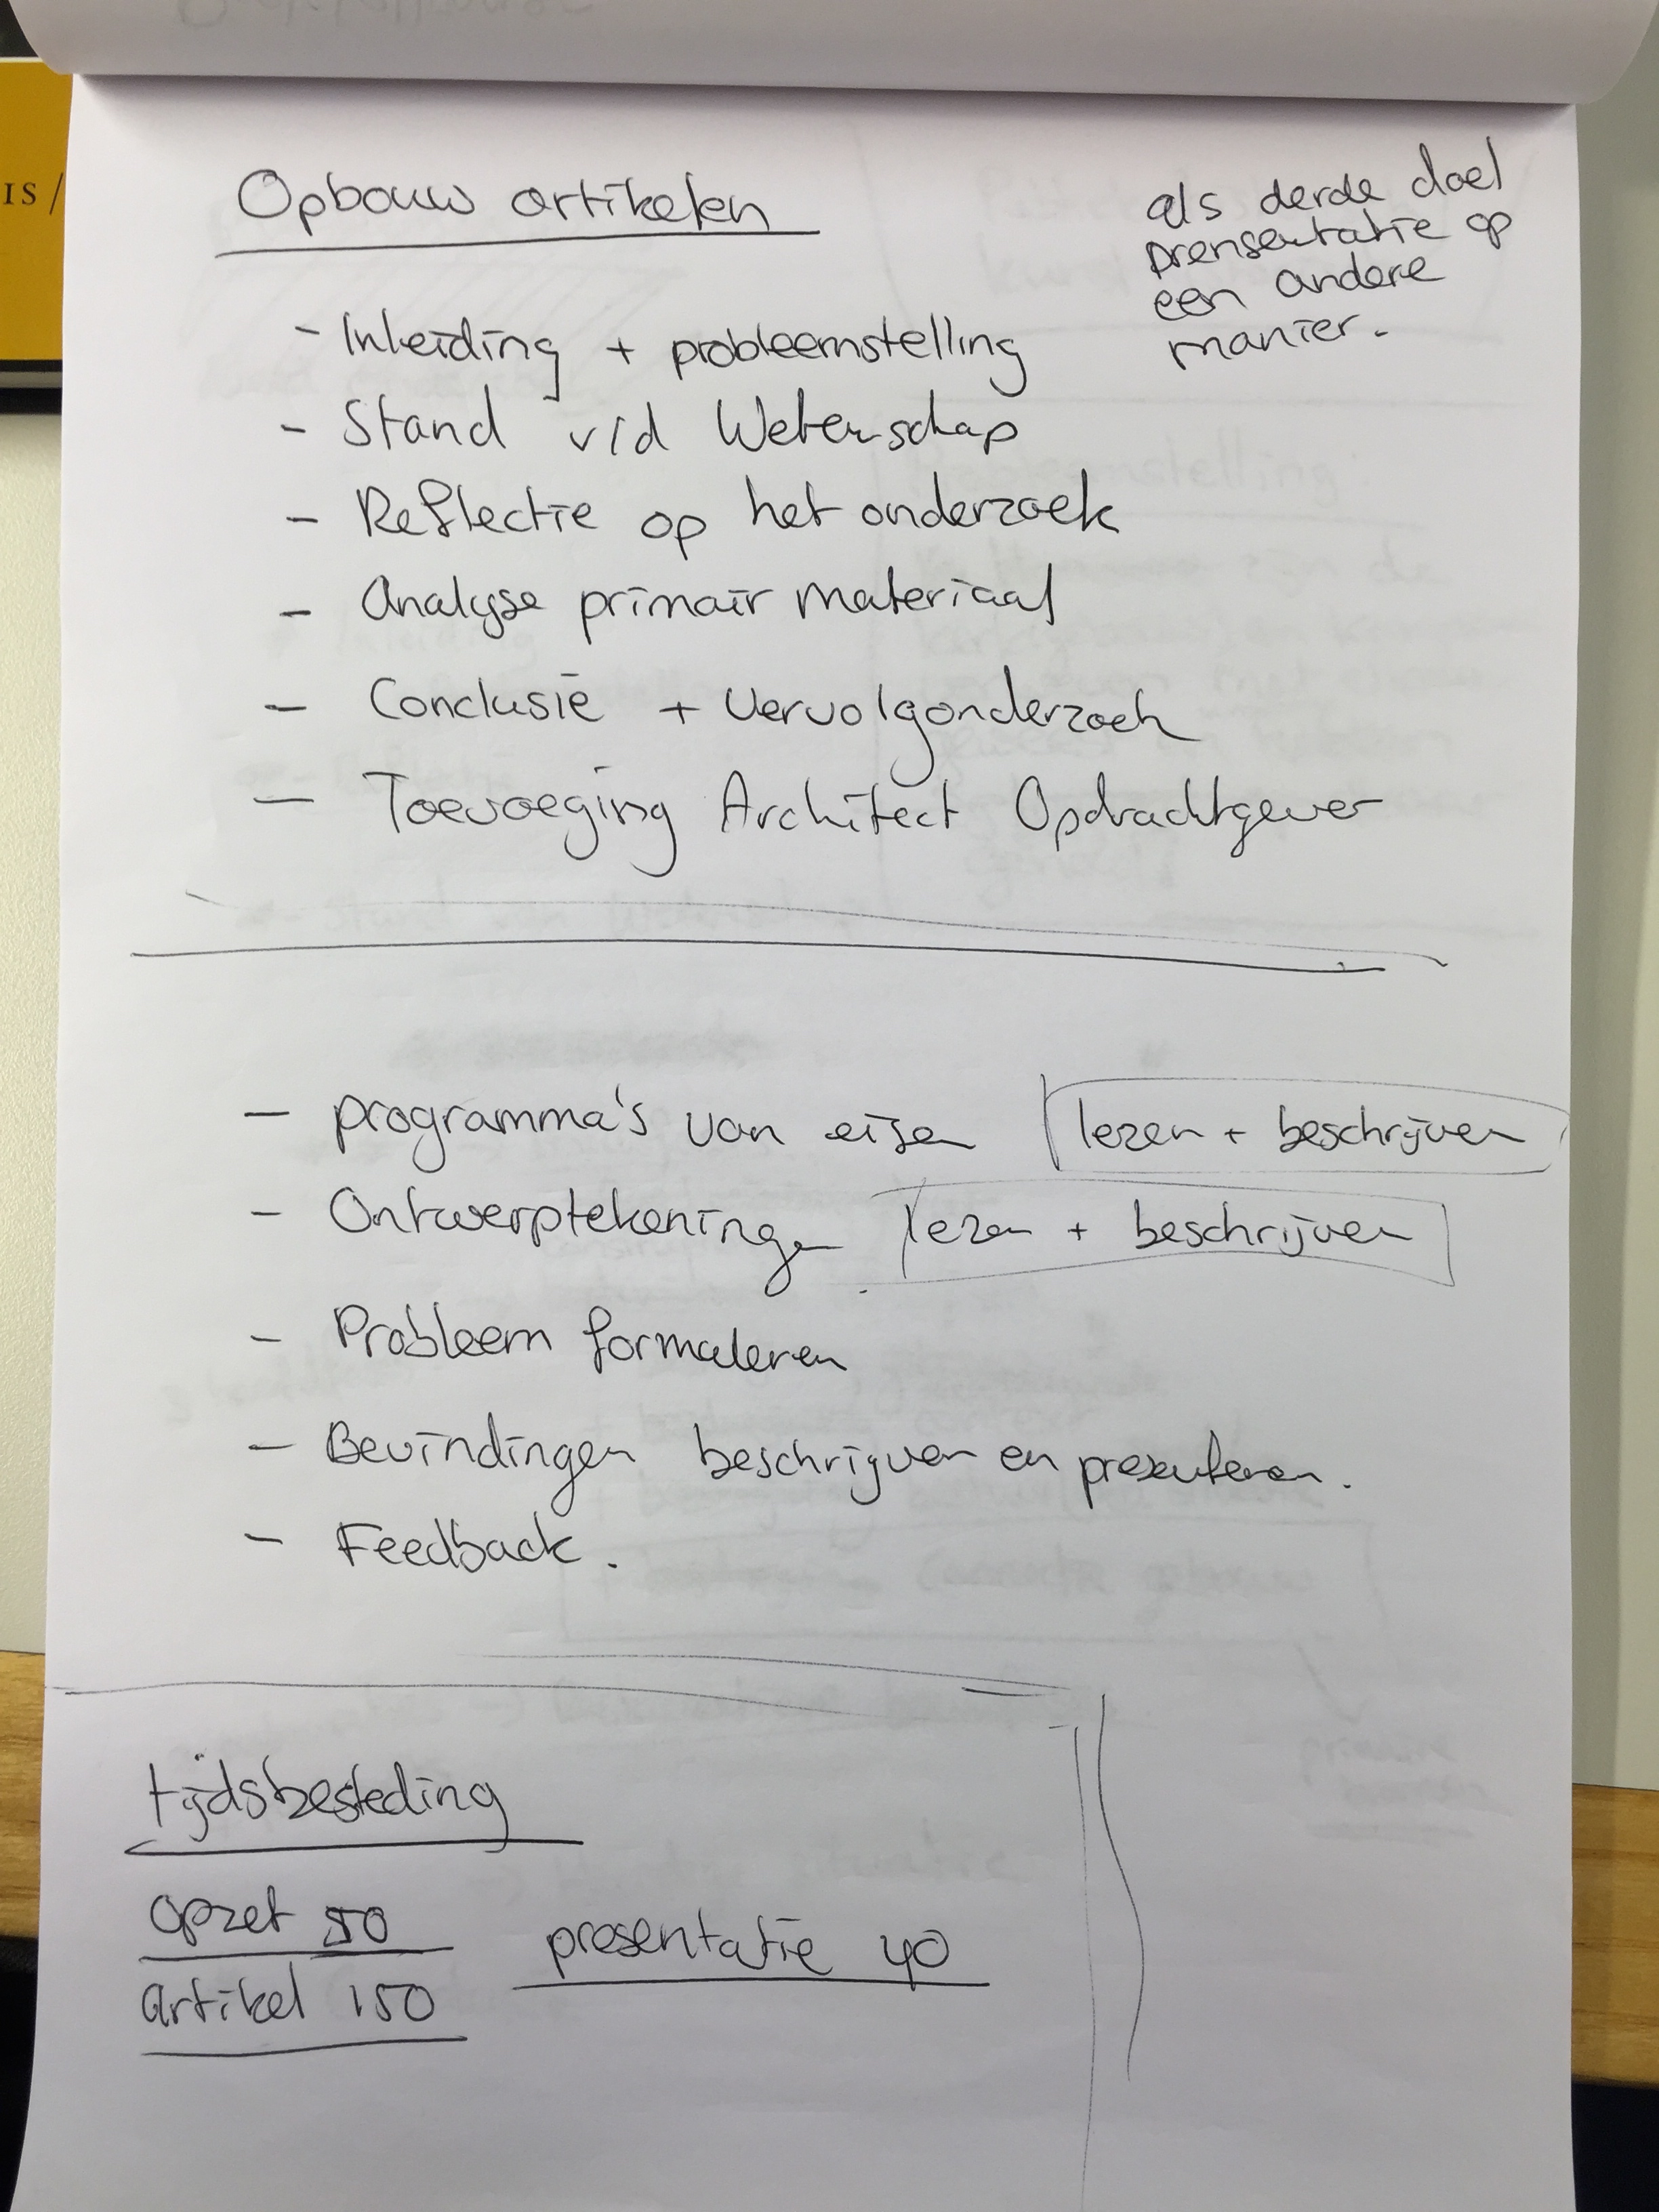 IS/
Opbouw artikelen
als derde doel
prensentatie op
een andere
manier.
- Inleiding + probleemstelling
- Stand v/d Wetenschap
- Reflectie op het onderzoek
- Analyse primair materiaal
- Conclusie + vervolgonderzoek
- Toevoeging Architect Opdrachtgever
- programma's van eisen lezen + beschrijven
- Ontwerptekeningen lezen + beschrijven
- Probleem formuleren
- Bevindingen beschrijven en presenteren.
- Feedback.
tijdsbesteding
opzet 50
presentatie 40
artikel 150